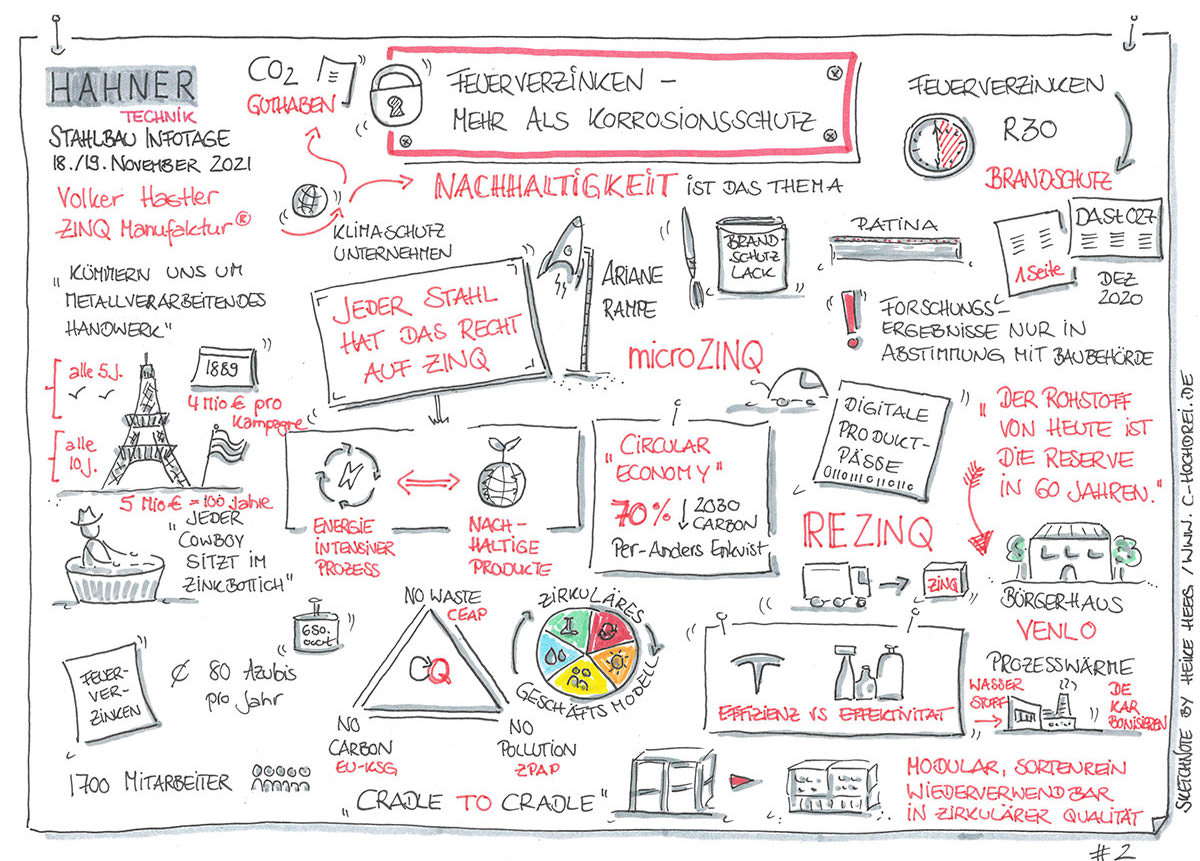 HAHNER
TECHNIK
STAHLBAU INFOTAGE
18./19. NOVEMBER 2021
Volker Hastler
ZINQ Manufaktur®
CO2
GUTHABEN
FEUERVERZINKEN –
MEHR ALS KORROSIONSSCHUTZ
FEUERVERZINKEN
R30
BRANDSCHUTZ
NACHHALTIGKEIT IST DAS THEMA
KLIMASCHUTZ
UNTERNEHMEN
"KÜMMERN UNS UM
METALLVERARBEITENDES
HANDWERK"
JEDER STAHL
HAT DAS RECHT
AUF ZINQ
ARIANE
RAMPE
BRAND-
SCHUTZ
LACK
PATINA
1 Seite
DASt 027
DEZ
2020
FORSCHUNGS-
ERGEBNISSE NUR IN
ABSTIMMUNG MIT BAUBEHÖRDE
microZINQ
alle 5 J.
alle
10 J.
1889
4 Mio € pro
Kampagne
5 Mio € = 100 Jahre
"JEDER
COWBOY
SITZT IM
ZINKBOTTICH"
ENERGIE
INTENSIVER
PROZESS
NACH-
HALTIGE
PRODUKTE
"CIRCULAR
ECONOMY"
70% ↓ 2030
CARBON
Per-Anders Enkvist
DIGITALE
PRODUKT-
PÄSSE
0110111011010
"DER ROHSTOFF
VON HEUTE IST
DIE RESERVE
IN 60 JAHREN."
REZINQ
ZINQ
BÜRGERHAUS
VENLO
FEUER-
VER-
ZINKEN
¢ 80 Azubis
pro Jahr
1700 MITARBEITER
NO WASTE
CEAP
NO
CARBON
EU-KSG
NO
POLLUTION
ZPAP
"CRADLE TO CRADLE"
ZIRKULÄRES
GESCHÄFTSMODELL
EFFIZIENZ VS EFFEKTIVITÄT
PROZESSWÄRME
WASSER
STOFF
DE
KAR
BONISIEREN
MODULAR, SORTENREIN
WIEDERVERWENDBAR
IN ZIRKULÄRER QUALITÄT
#2
SKETCHNOTE BY HEIKE HEES / WWW. C-HOCHDREI.DE